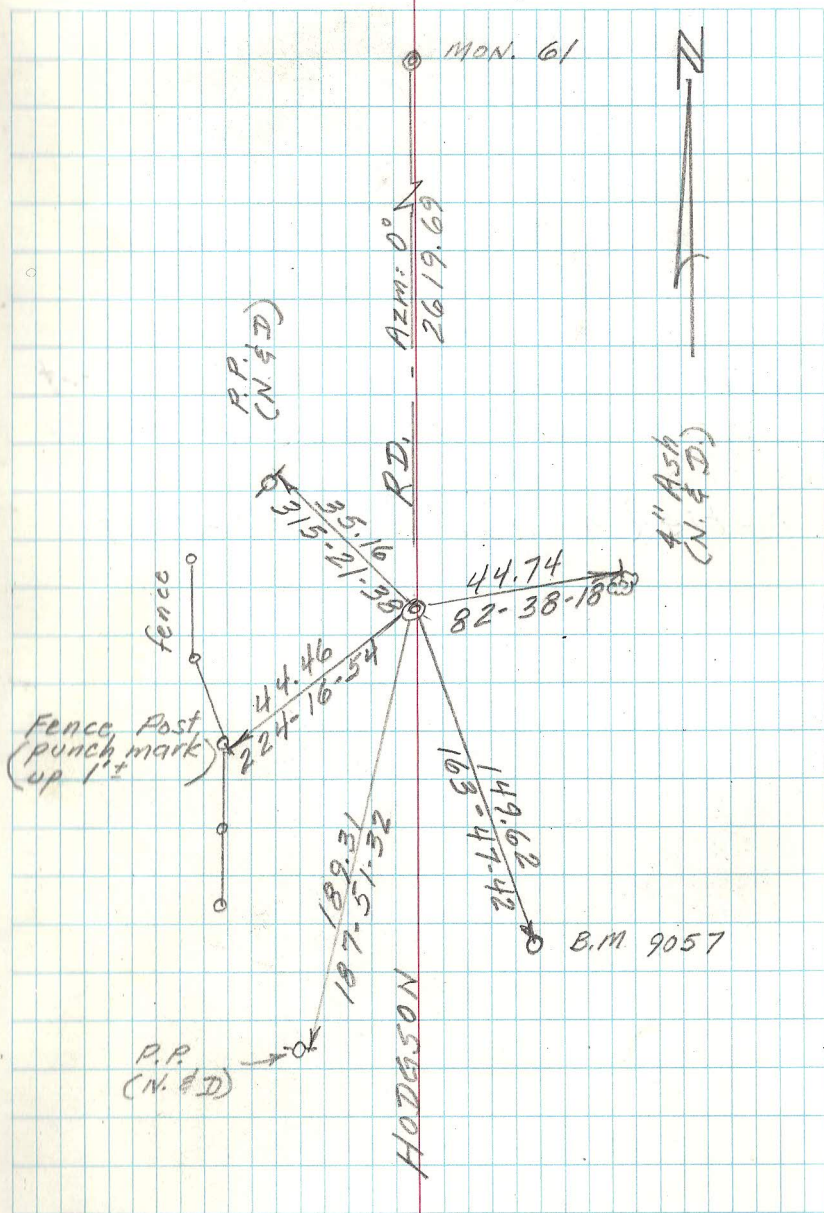 MON. 61
N
Azm: 0°
2619.69
P.P.
(N. & D)
RD.
4" Ash
(N. & D.)
35.16
315-21-38
44.74
82-38-18
fence
44.46
224-16-54
Fence Post
(punch mark
up 1'±)
189.31
187-51-32
149.62
163-47-42
B.M 9057
HODGSON
P.P.
(N. & D)